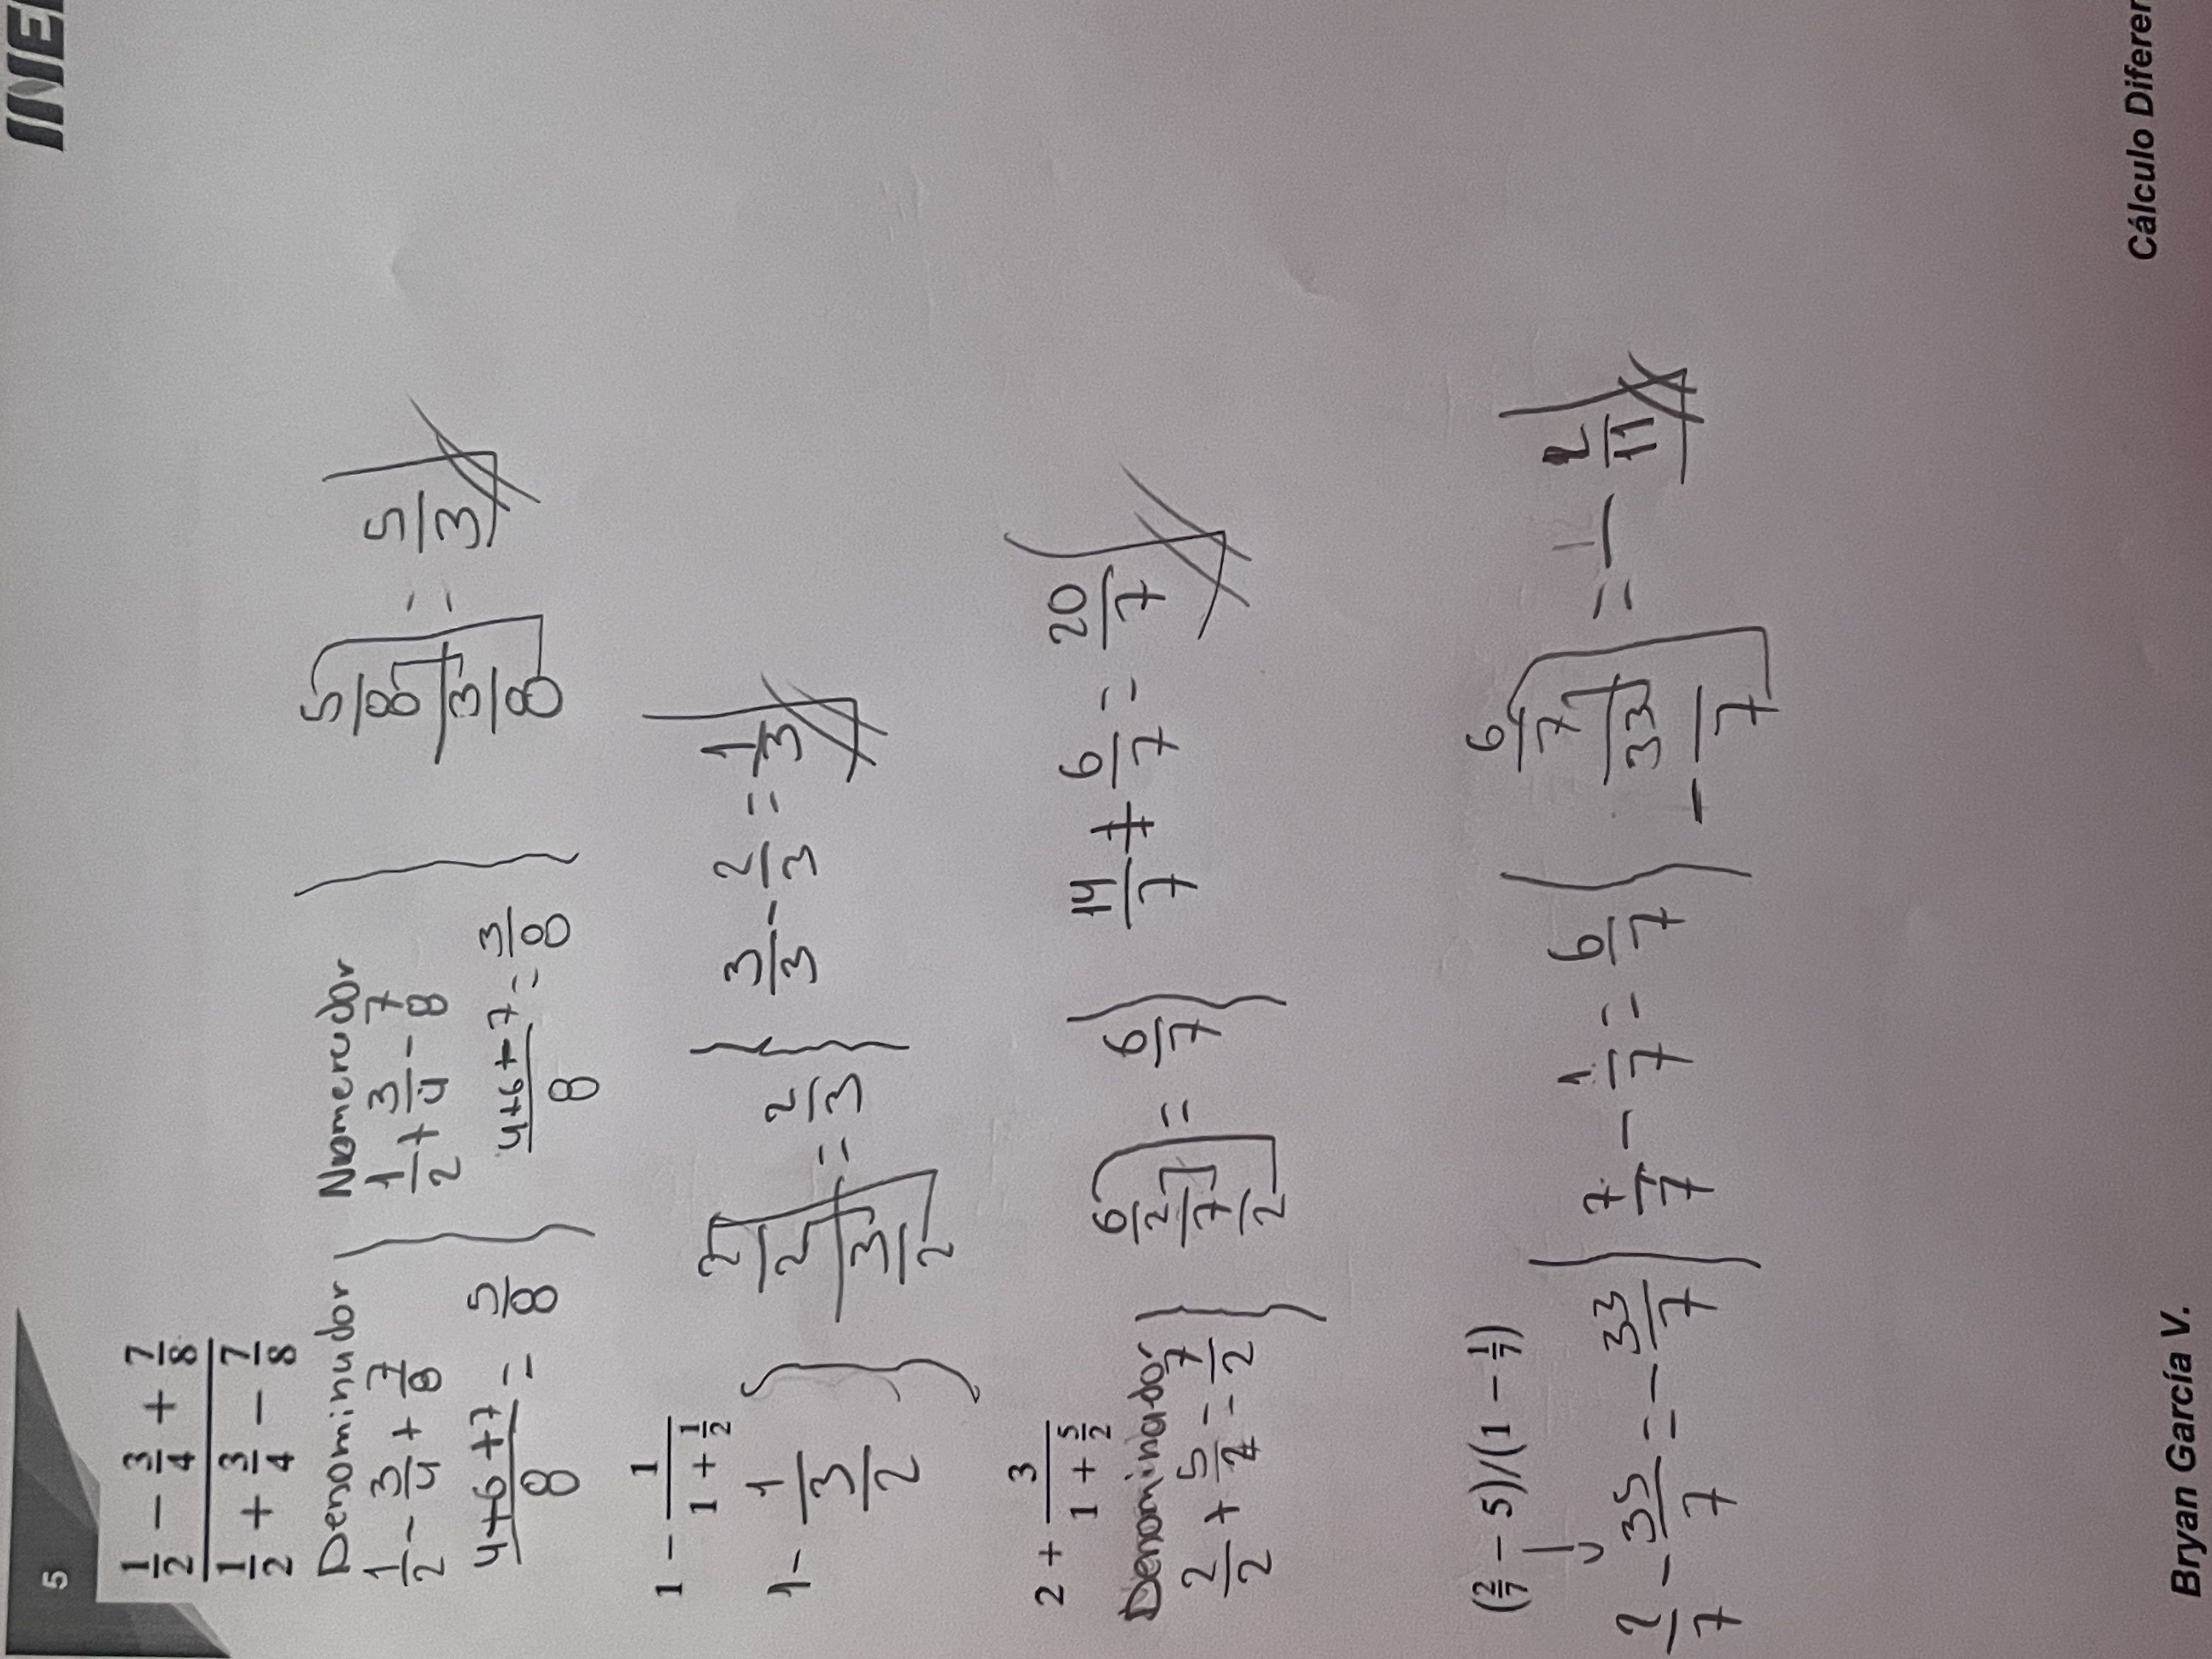 5
INE
1/2 − 3/4 + 7/8
1/2 + 3/4 − 7/8
Denominador Nomerador
1/2 − 3/4 + 7/8 1/2 + 3/4 − 7/8 5/8 / 3/8 = 5/3
4+6+7/8 = 5/8 4+6+7/8 = 3/8
1 − 1/(1 + 1/2)
1 − 1/(3/2) 2/2 / 3/2 = 2/3 3/3 − 2/3 = 1/3
2 + 3/(1 + 5/2)
Denominador
2/2 + 5/2 = 7/2 6/2 / 7/2 = 6/7 14/7 + 6/7 = 20/7
(2/7 − 5)/(1 − 1/7)
2/7 − 35/7 = − 33/7 7/7 − 1/7 = 6/7 6/7 / − 33/7 = − 2/11
Bryan García V. Cálculo Diferen